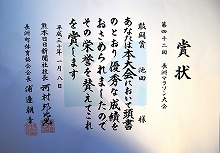 賞状
第四十二回 長洲マラソン大会
敢闘賞 池田 様
あなたは本大会において頭書
のとおり優秀な成績を
おさめられましたので
その栄誉を讃えてこれ
を賞します
平成二十年一月八日
熊本日日新聞社社長
長洲町体育協会会長